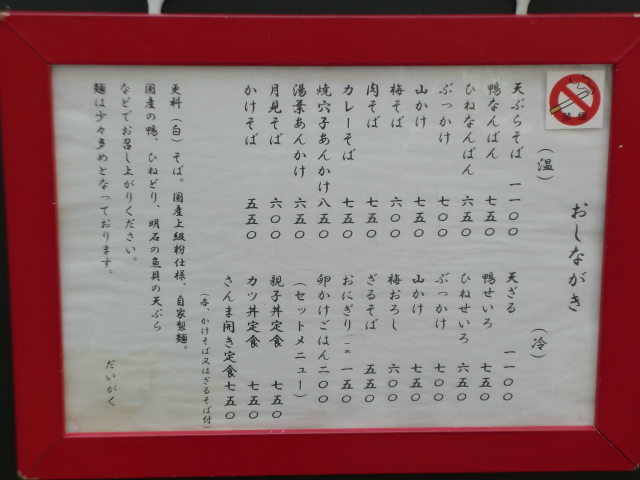 おしながき
（温）
天ぷらそば 一一〇〇
鴨なんばん 七五〇
ひねなんばん 六五〇
ぶっかけ 七〇〇
山かけ 七五〇
梅そば 六〇〇
肉そば 七五〇
カレーそば 七五〇
焼穴子あんかけ 八五〇
湯葉あんかけ 六五〇
月見そば 六〇〇
かけそば 五五〇
（冷）
天ざる 一一〇〇
鴨せいろ 七五〇
ひねせいろ 六五〇
ぶっかけ 七〇〇
山かけ 七五〇
梅おろし 六〇〇
ざるそば 五五〇
おにぎり 一五〇
卵かけごはん 二〇〇
（セットメニュー）
親子丼定食 七五〇
カツ丼定食 七五〇
さんま開き定食 七五〇
（各、かけそば又はざるそば付）
更科（白）そば。国産上級粉仕様、自家製麺。
国産の鴨、ひねどり、明石の魚貝の天ぷら
などでお召し上がりください。
麺は少々多めとなっております。
だいがく
禁煙